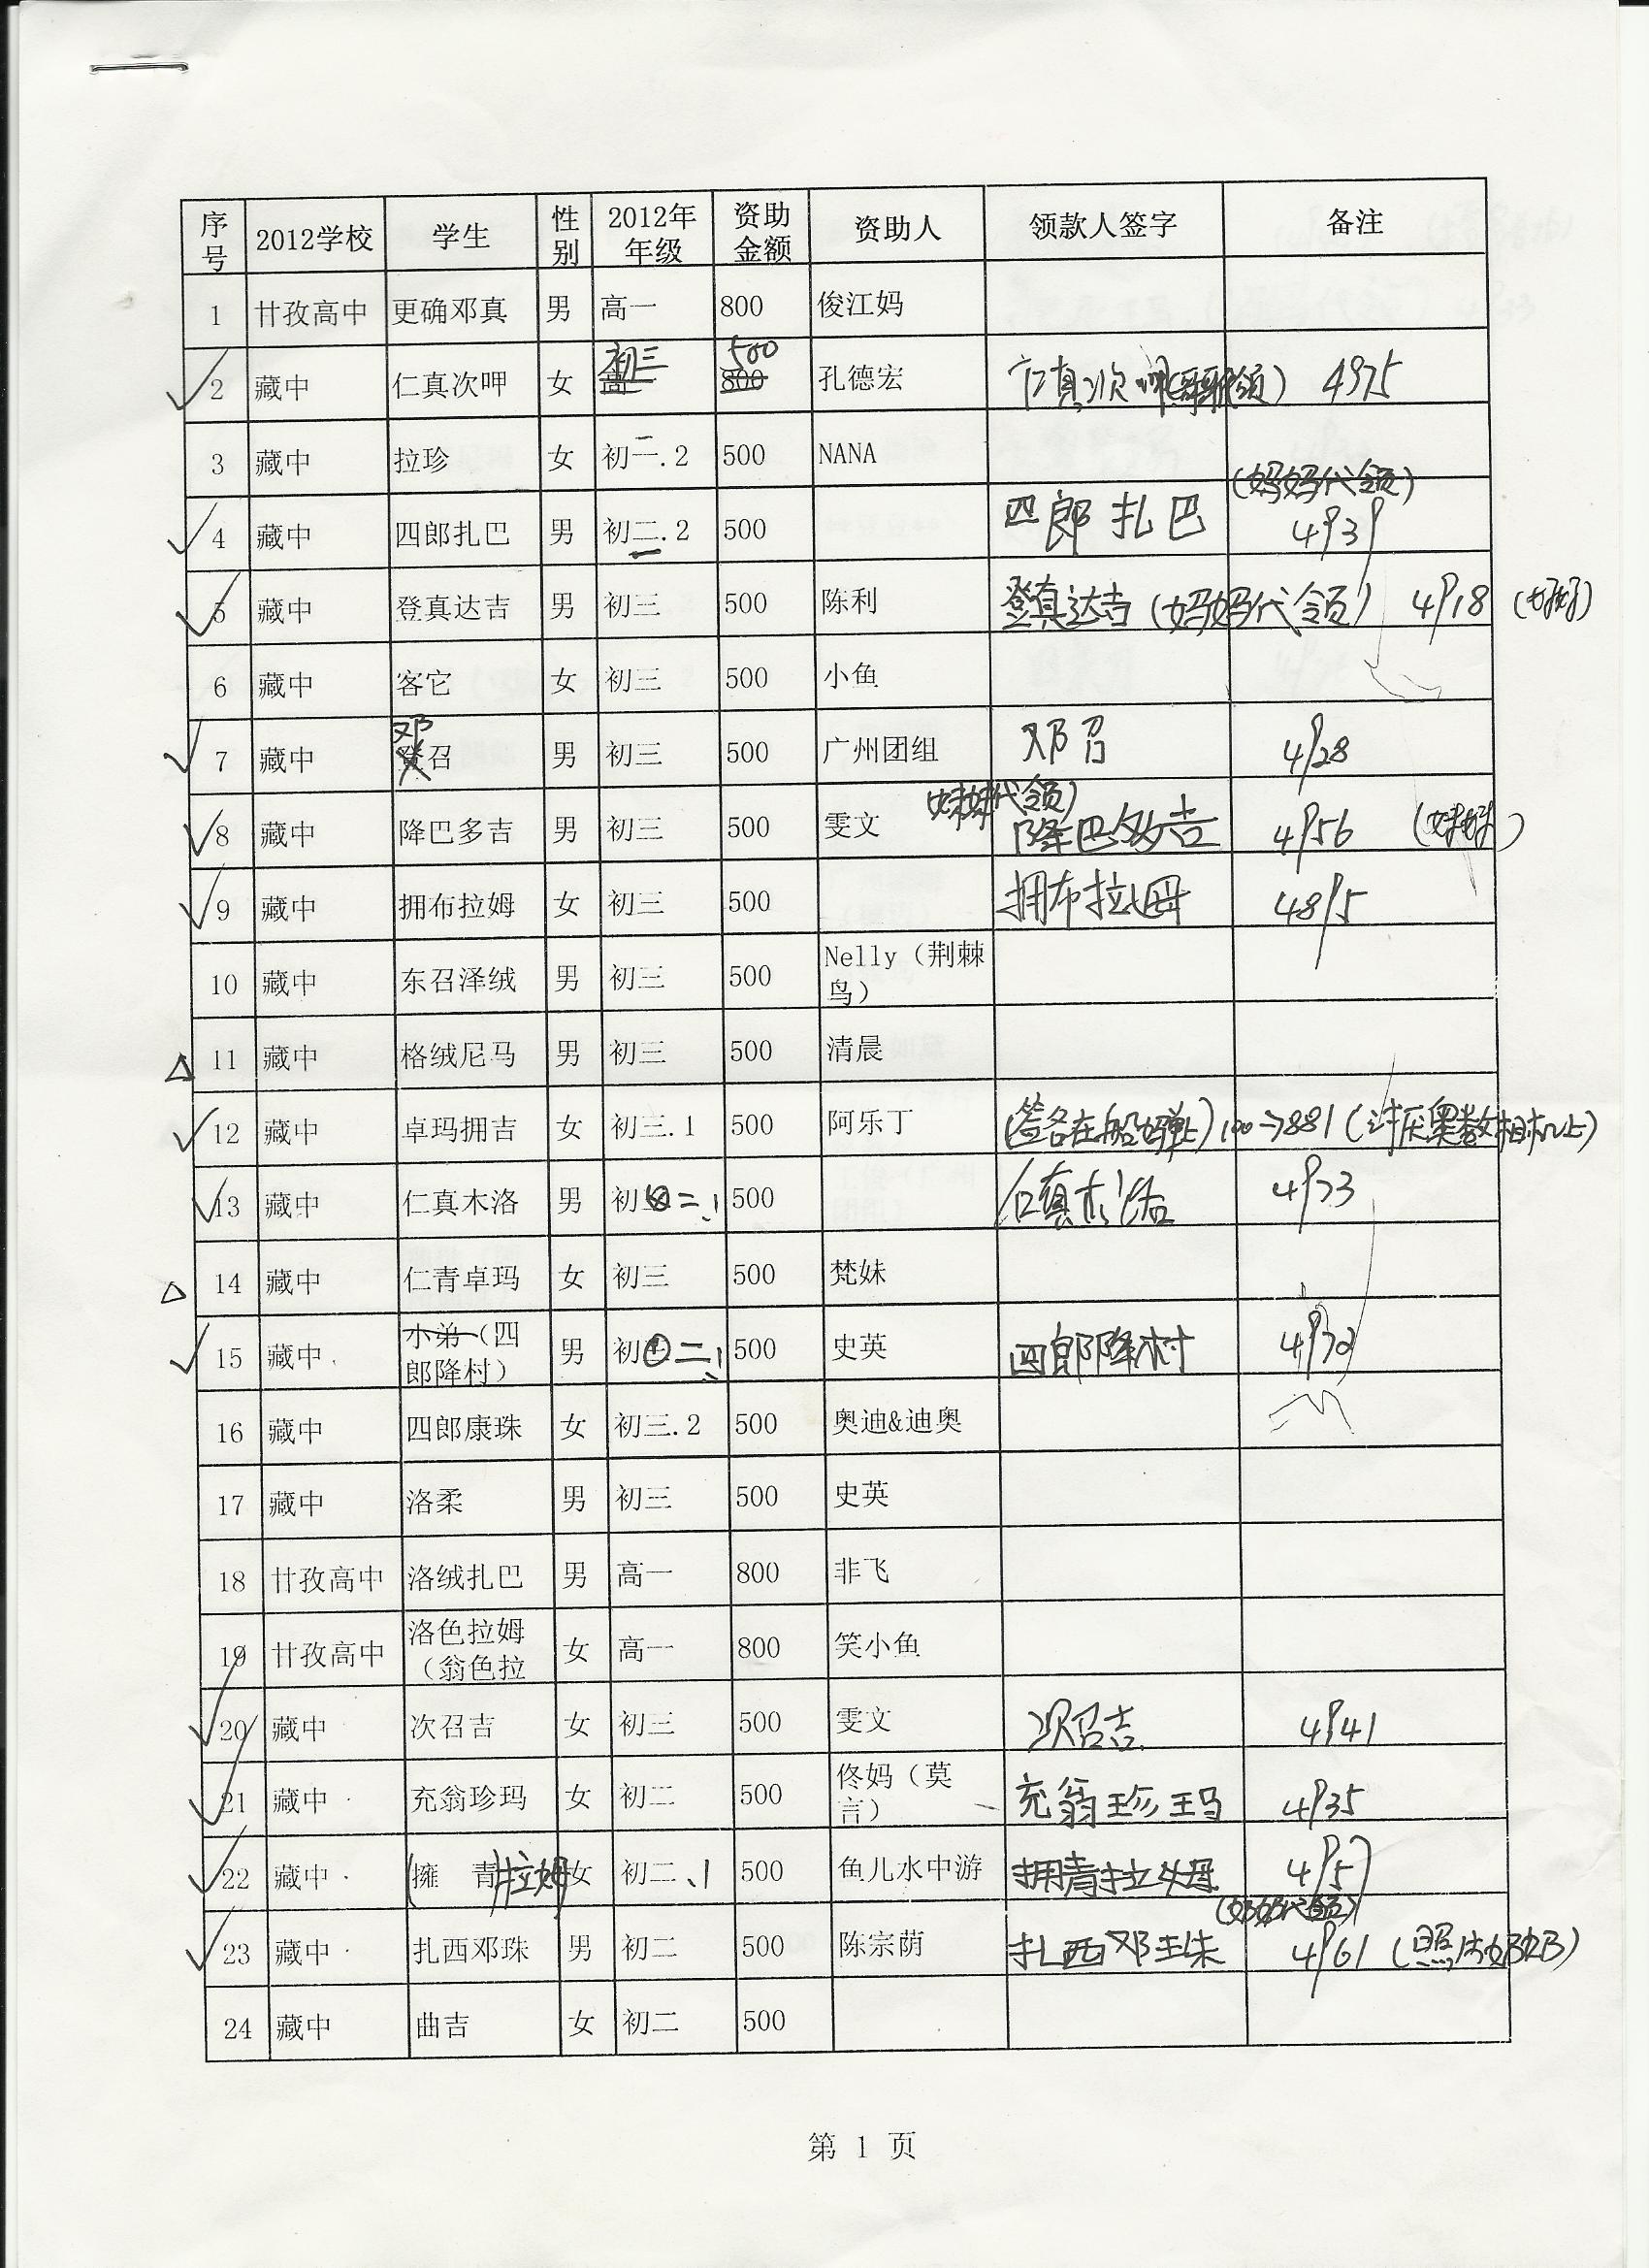 序号 2012学校 学生 性别 2012年年级 资助金额 资助人 领款人签字 备注
1 甘孜高中 更确邓真 男 高一 800 俊江妈
2 藏中 仁真次呷 女 高一 初三 800 500 孔德宏 仁真次呷 4975
3 藏中 拉珍 女 初二.2 500 NANA
(妈妈代领)
4 藏中 四郎扎巴 男 初二.2 500 四郎扎巴 4939
5 藏中 登真达吉 男 初三 500 陈利 登真达吉(妈妈代领) 4918
6 藏中 客它 女 初三 500 小鱼
7 藏中 登召 邓 男 初三 500 广州团组 邓召 4928
(妹妹代领)
8 藏中 降巴多吉 男 初三 500 雯文 降巴多吉 4956 (妹妹)
9 藏中 拥布拉姆 女 初三 500 拥布拉姆
10 藏中 东召泽绒 男 初三 500 Nelly（荆棘鸟）
△ 11 藏中 格绒尼马 男 初三 500 清晨
12 藏中 卓玛拥吉 女 初三.1 500 阿乐丁 (签名在船妈单上) 100→881 (讨厌奥数相机上)
13 藏中 仁真木洛 男 初二.1 500 仁真木洛 4973
△ 14 藏中 仁青卓玛 女 初三 500 梵妹
15 藏中 小弟（四郎降村） 男 初二.1 500 史英 四郎降村 4972
16 藏中 四郎康珠 女 初三.2 500 奥迪&迪奥
17 藏中 洛柔 男 初三 500 史英
18 甘孜高中 洛绒扎巴 男 高一 800 非飞
19 甘孜高中 洛色拉姆（翁色拉 女 高一 800 笑小鱼
20 藏中 次召吉 女 初三 500 雯文 次召吉 4941
21 藏中 充翁珍玛 女 初二 500 佟妈（莫言） 充翁珍玛 4935
22 藏中 (擁 青)拉姆 女 初二、1 500 鱼儿水中游 拥青拉姆 495
23 藏中 扎西邓珠 男 初二 500 陈宗荫 扎西邓珠 4961
24 藏中 曲吉 女 初二 500
第 1 页